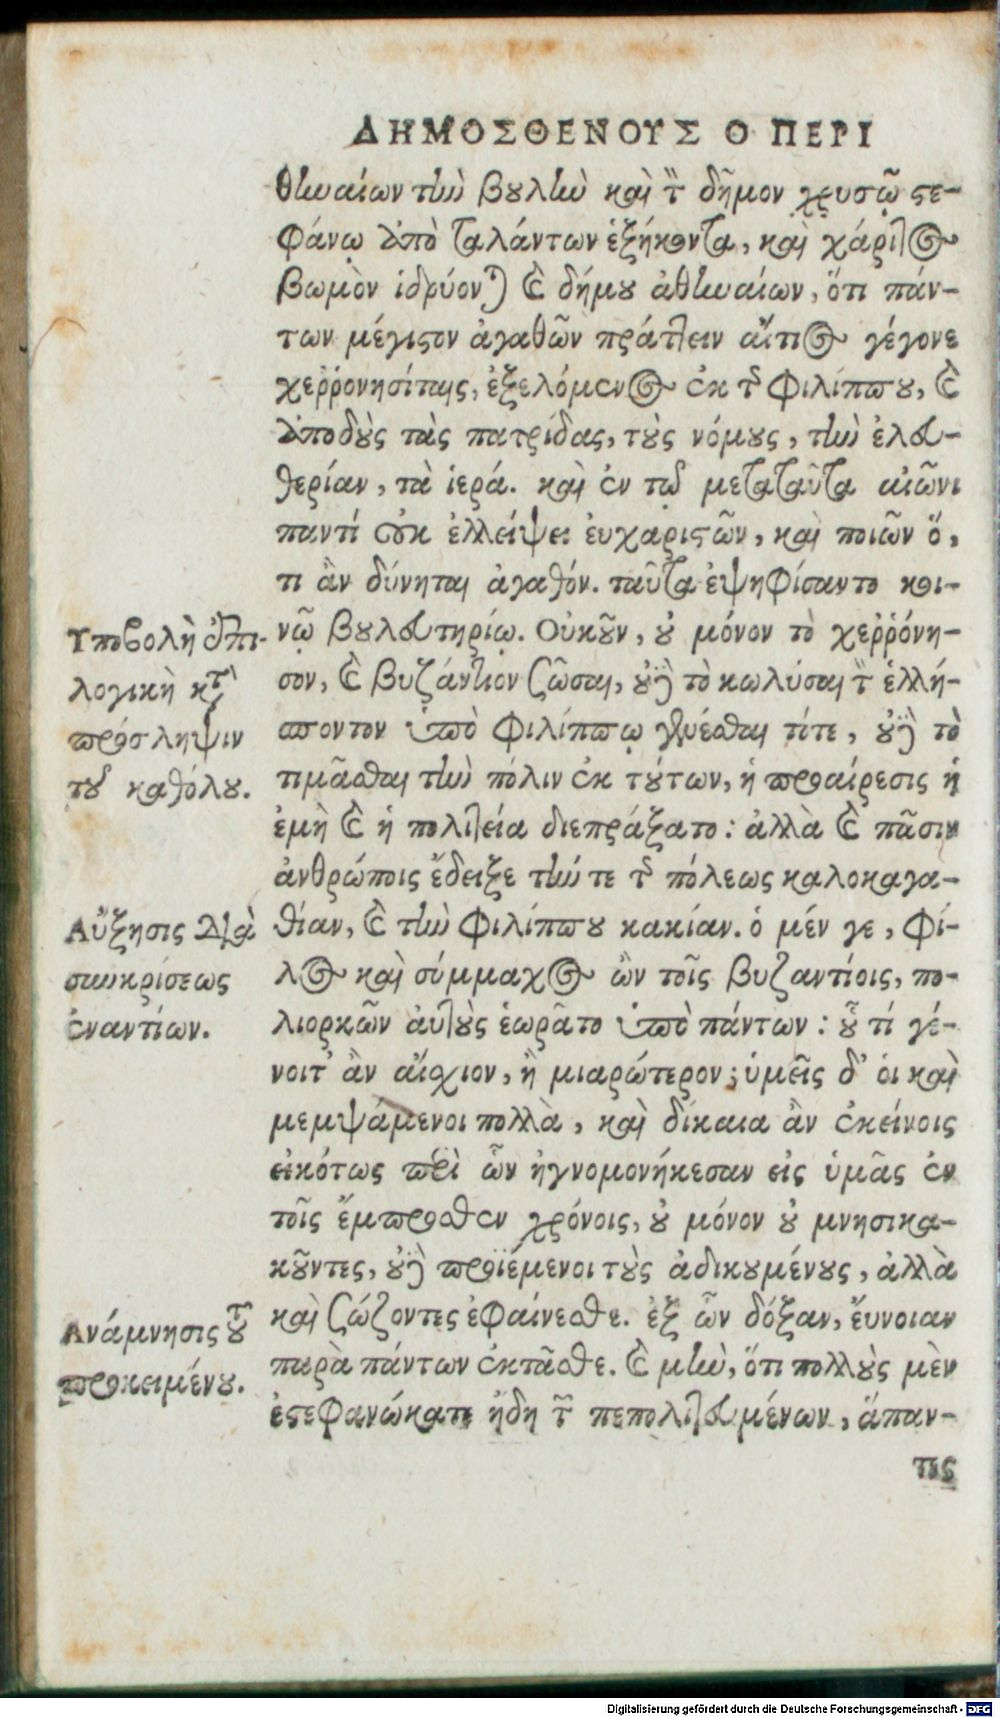 ΔΗΜΟΣΘΕΝΟΥΣ Ο ΠΕΡΙ
θηναίων τὴν βουλὴν καὶ τὸν δῆμον χρυσῷ στε-
φάνῳ ἀπὸ ταλάντων ἑξήκοντα, καὶ χάριτος
βωμὸν ἱδρύονται καὶ δήμου ἀθηναίων, ὅτι πάν-
των μέγιστον ἀγαθῶν πράττειν αἴτιος γέγονε
χεῤῥονησίταις, ἐξελόμενος ἐκ τῆς Φιλίππου, καὶ
ἀποδοὺς τὰς πατρίδας, τοὺς νόμους, τὴν ἐλευ-
θερίαν, τὰ ἱερά. καὶ ἐν τῷ μεταταῦτα αἰῶνι
παντί οὐκ ἐλλείψει ἐυχαριστῶν, καὶ ποιῶν ὅ,
τι ἂν δύνηται ἀγαθόν. ταῦτα ἐψηφίσαντο κοι-
νῷ βουλευτηρίῳ. Οὐκοῦν, οὐ μόνον τὸ χεῤῥόνη-
σον, καὶ βυζάντιον σῶσαι, οὐδὲ τὸ κωλύσαι τὸν ἑλλή-
σποντον ὑπὸ Φιλίππῳ γενέσθαι τότε, οὐδὲ τὸ
τιμᾶσθαι τὴν πόλιν ἐκ τούτων, ἡ προαίρεσις ἡ
ἐμὴ καὶ ἡ πολιτεία διεπράξατο: ἀλλὰ καὶ πᾶσιν
ἀνθρώποις ἔδειξε τήν τε τῆς πόλεως καλοκαγα-
θίαν, καὶ τὴν Φιλίππου κακίαν. ὁ μέν γε, φί-
λος καὶ σύμμαχος ὢν τοῖς βυζαντίοις, πο-
λιορκῶν αὐτοὺς ἑωρᾶτο ὑπὸ πάντων: οὗ τί γέ-
νοιτ' ἂν αἴσχιον, ἢ μιαρώτερον; ὑμεῖς δ' ὁι καὶ
μεμψάμενοι πολλὰ, καὶ δίκαια ἂν ἐκείνοις
εἰκότως περὶ ὧν ἠγνομονήκεσαν εἰς ὑμᾶς ἐν
τοῖς ἔμπροσθεν χρόνοις, οὐ μόνον οὐ μνησικα-
κοῦντες, οὐδὲ προϊέμενοι τοὺς ἀδικουμένους, ἀλλὰ
καὶ σώζοντες ἐφαίνεσθε. ἐξ ὧν δόξαν, ἔυνοιαν
παρὰ πάντων ἐκτᾶσθε. καὶ μὴν, ὅτι πολλοὺς μὲν
ἐστεφανώκατε ἤδη τῶν πεπολιτευμένων, ἅπαν-
τες
Υποβολὴ ἐπι-
λογικὴ κατὰ
πρόσληψιν
τοῦ καθόλου.
Αὔξησις διὰ
συγκρίσεως
ἐναντίων.
Ανάμνησις τοῦ
προκειμένου.
Digitalisierung gefördert durch die Deutsche Forschungsgemeinschaft - DFG